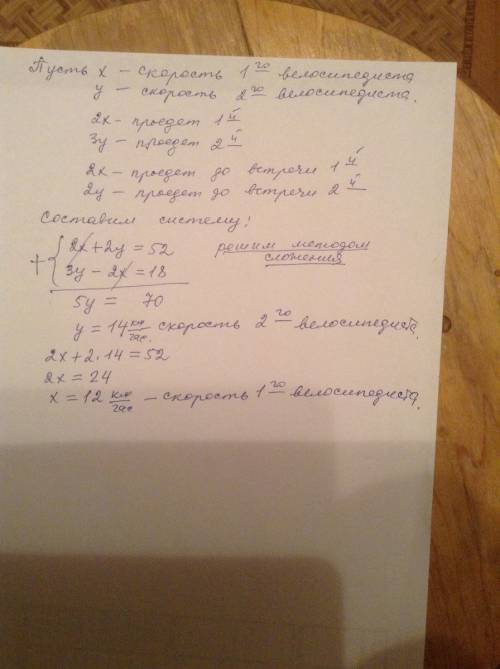 Пусть x – скорость 1го велосипедиста
y – скорость 2го велосипедиста.
2x - проедет 1й
3y – проедет 2й
2x – проедет до встречи 1й
2y – проедет до встречи 2й
Составим систему!
+ { 2x + 2y = 52 решим методом
3y – 2x = 18 сложения
5y = 70
y = 14 км/час. скорость 2го велосипедиста.
2x + 2·14 = 52
2x = 24
x = 12 км/час – скорость 1го велосипедиста.